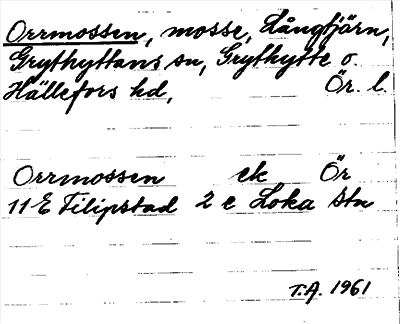 Orrmossen, mosse, Långtjärn,
Grythyttans sn, Grythytte o.
Hällefors hd, Ör. l.
Orrmossen ek Ör
11 E Filipstad 2 e Loka Stn
T.A. 1961